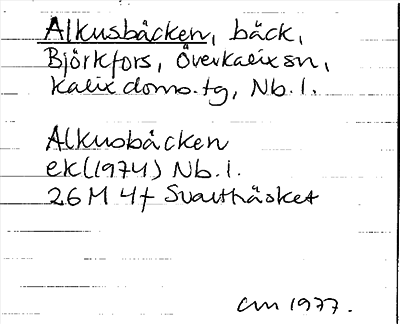 Alkusbäcken, bäck,
Björkfors, Överkalix sn,
Kalix doms.tg, Nb.l.
Alkusbäcken
ek (1974) Nb.l.
26M 4f Svartbäsket
cm 1977.